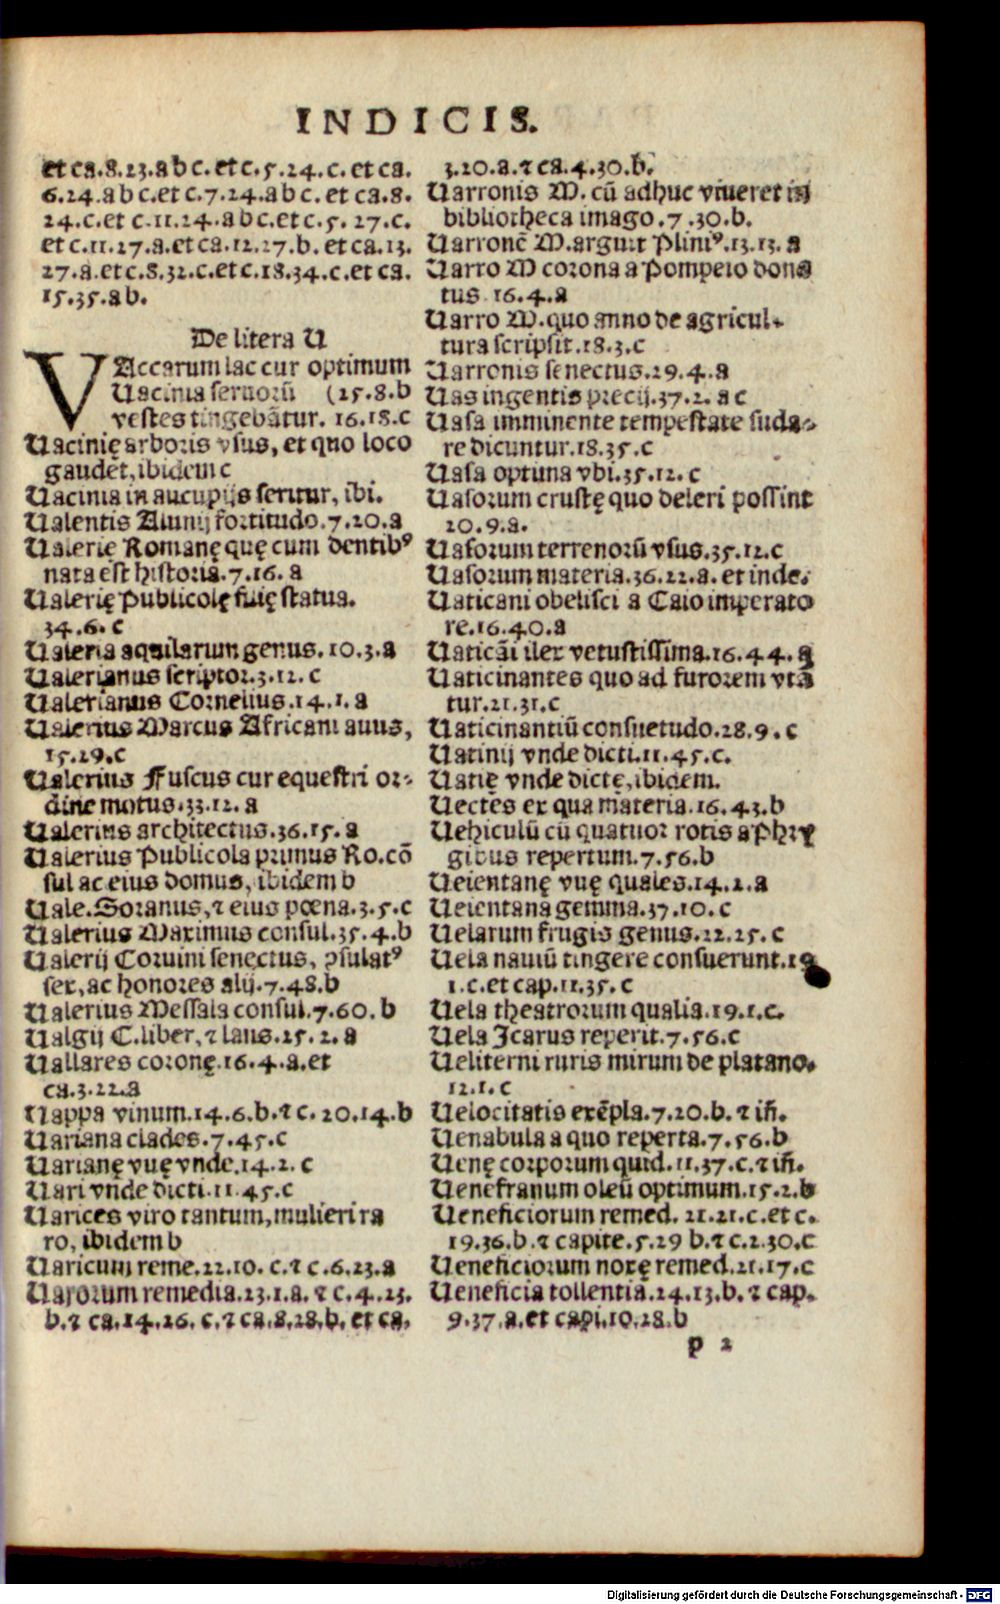 INDICIS.
et ca.8.23.a b c. et c.5.24.c. et ca.
6.24.a b c. et c.7.24.a b c. et ca.8.
24.c. et c.11.24.a b c. et c.5.27.c.
et c.11.27.a. et ca.12.27.b. et ca.13.
27.a. et c.8.32.c. et c.18.34.c. et ca.
15.35.a b.
De litera U
VAccarum lac cur optimum
Uacinia seruorū (25.8.b
vestes tingebātur. 16.18.c
Uacinię arboris vsus, et quo loco
gaudēt, ibidem c
Uacinia in aucupijs seritur, ibi.
Ualentis Aiunij fortitudo.7.20.a
Ualerie Romanę quę cum dentibꝰ
nata est historia.7.16.a
Ualerię Publicolę fuię statua.
34.6.c
Ualeria aquilarum genus.10.3.a
Ualerianus scriptor.3.12.c
Ualerianus Cornelius.14.1.a
Ualerius Marcus Africani auus,
15.29.c
Ualerius Fuscus cur equestri or-
dine motus.33.12.a
Ualerius architectus.36.15.a
Ualerius Publicola primus Ro.cō
sul ac eius domus, ibidem b
Uale.Soranus, ⁊ eius pœna.3.5.c
Ualerius Maximus consul.35.4.b
Ualerij Coruini senectus, ꝯsulatꝰ
sex, ac honores alij.7.48.b
Ualerius Messala consul.7.60.b
Ualgij C.liber, ⁊ laus.25.2.a
Uallares coronę.16.4.a. et
ca.3.22.a
Uappa vinum.14.6.b. ⁊ c.20.14.b
Uariana clades.7.45.c
Uarianę vuę vnde.14.2.c
Uari vnde dicti.11.45.c
Uarices viro tantum, mulieri ra
ro, ibidem b
Uaricum reme.22.10.c. ⁊ c.6.23.a
Uarorum remedia.23.1.a. ⁊ c.4.23.
b. ⁊ ca.14.26.c. ⁊ ca.8.28.b. et ca.
3.20.a. ⁊ ca.4.30.b.
Uarronis M. cū adhuc viueret in
bibliotheca imago.7.30.b.
Uarronē M. arguit Pliniꝰ.13.13.a
Uarro M corona a Pompeio dona
tus 16.4.a
Uarro M. quo anno de agricul-
tura scripsit.18.3.c
Uarronis senectus.29.4.a
Uas ingentis precij.37.2.a c
Uasa imminente tempestate suda-
re dicuntur.18.35.c
Uasa optima vbi.35.12.c
Uasorum crustę quo deleri possint
20.9.a.
Uasorum terrenorū vsus.35.12.c
Uasorum materia.36.22.a. et inde.
Uaticani obelisci a Caio imperato
re.16.40.a
Uaticāi ilex vetustissima.16.44.a
Uaticinantes quo ad furorem vtā
tur.21.31.c
Uaticinantiū consuetudo.28.9.c
Uatinij vnde dicti.11.45.c.
Uatię vnde dictę, ibidem.
Uectes ex qua materia.16.43.b
Uehiculū cū quatuor rotis a Phry
gibus repertum.7.56.b
Ueientanę vuę quales.14.2.a
Ueientana gemma.37.10.c
Uelarum frugis genus.22.25.c
Uela nauiū tingere consuerunt.19
1.c. et cap.11.35.c
Uela theatrorum qualia.19.1.c.
Uela Icarus reperit.7.56.c
Ueliterni ruris mirum de platano.
12.1.c
Uelocitatis exēpla.7.20.b. ⁊ iñ.
Uenabula a quo reperta.7.56.b
Uenę corporum quid.11.37.c. ⁊ iñ.
Uenefranum oleū optimum.15.2.b
Ueneficiorum remed.21.21.c. et c.
19.36.b. ⁊ capite.5.29 b. ⁊ c.2.30.c
Ueneficiorum notę remed.21.17.c
Ueneficia tollentia.24.13.b. ⁊ cap.
9.37.a. et capi.10.28.b
p 2
Digitalisierung gefördert durch die Deutsche Forschungsgemeinschaft - DFG